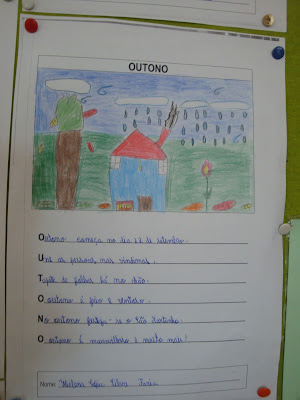 OUTONO
Outono começa no dia 23 de setembro.
Uns as pessoas nas vindimas.
Tapete de folhas há no chão.
O outono é frio e ventoso.
No outono festeja-se o São Martinho.
Outono é maravilhoso e muito mais!
Nome: Helena Silva